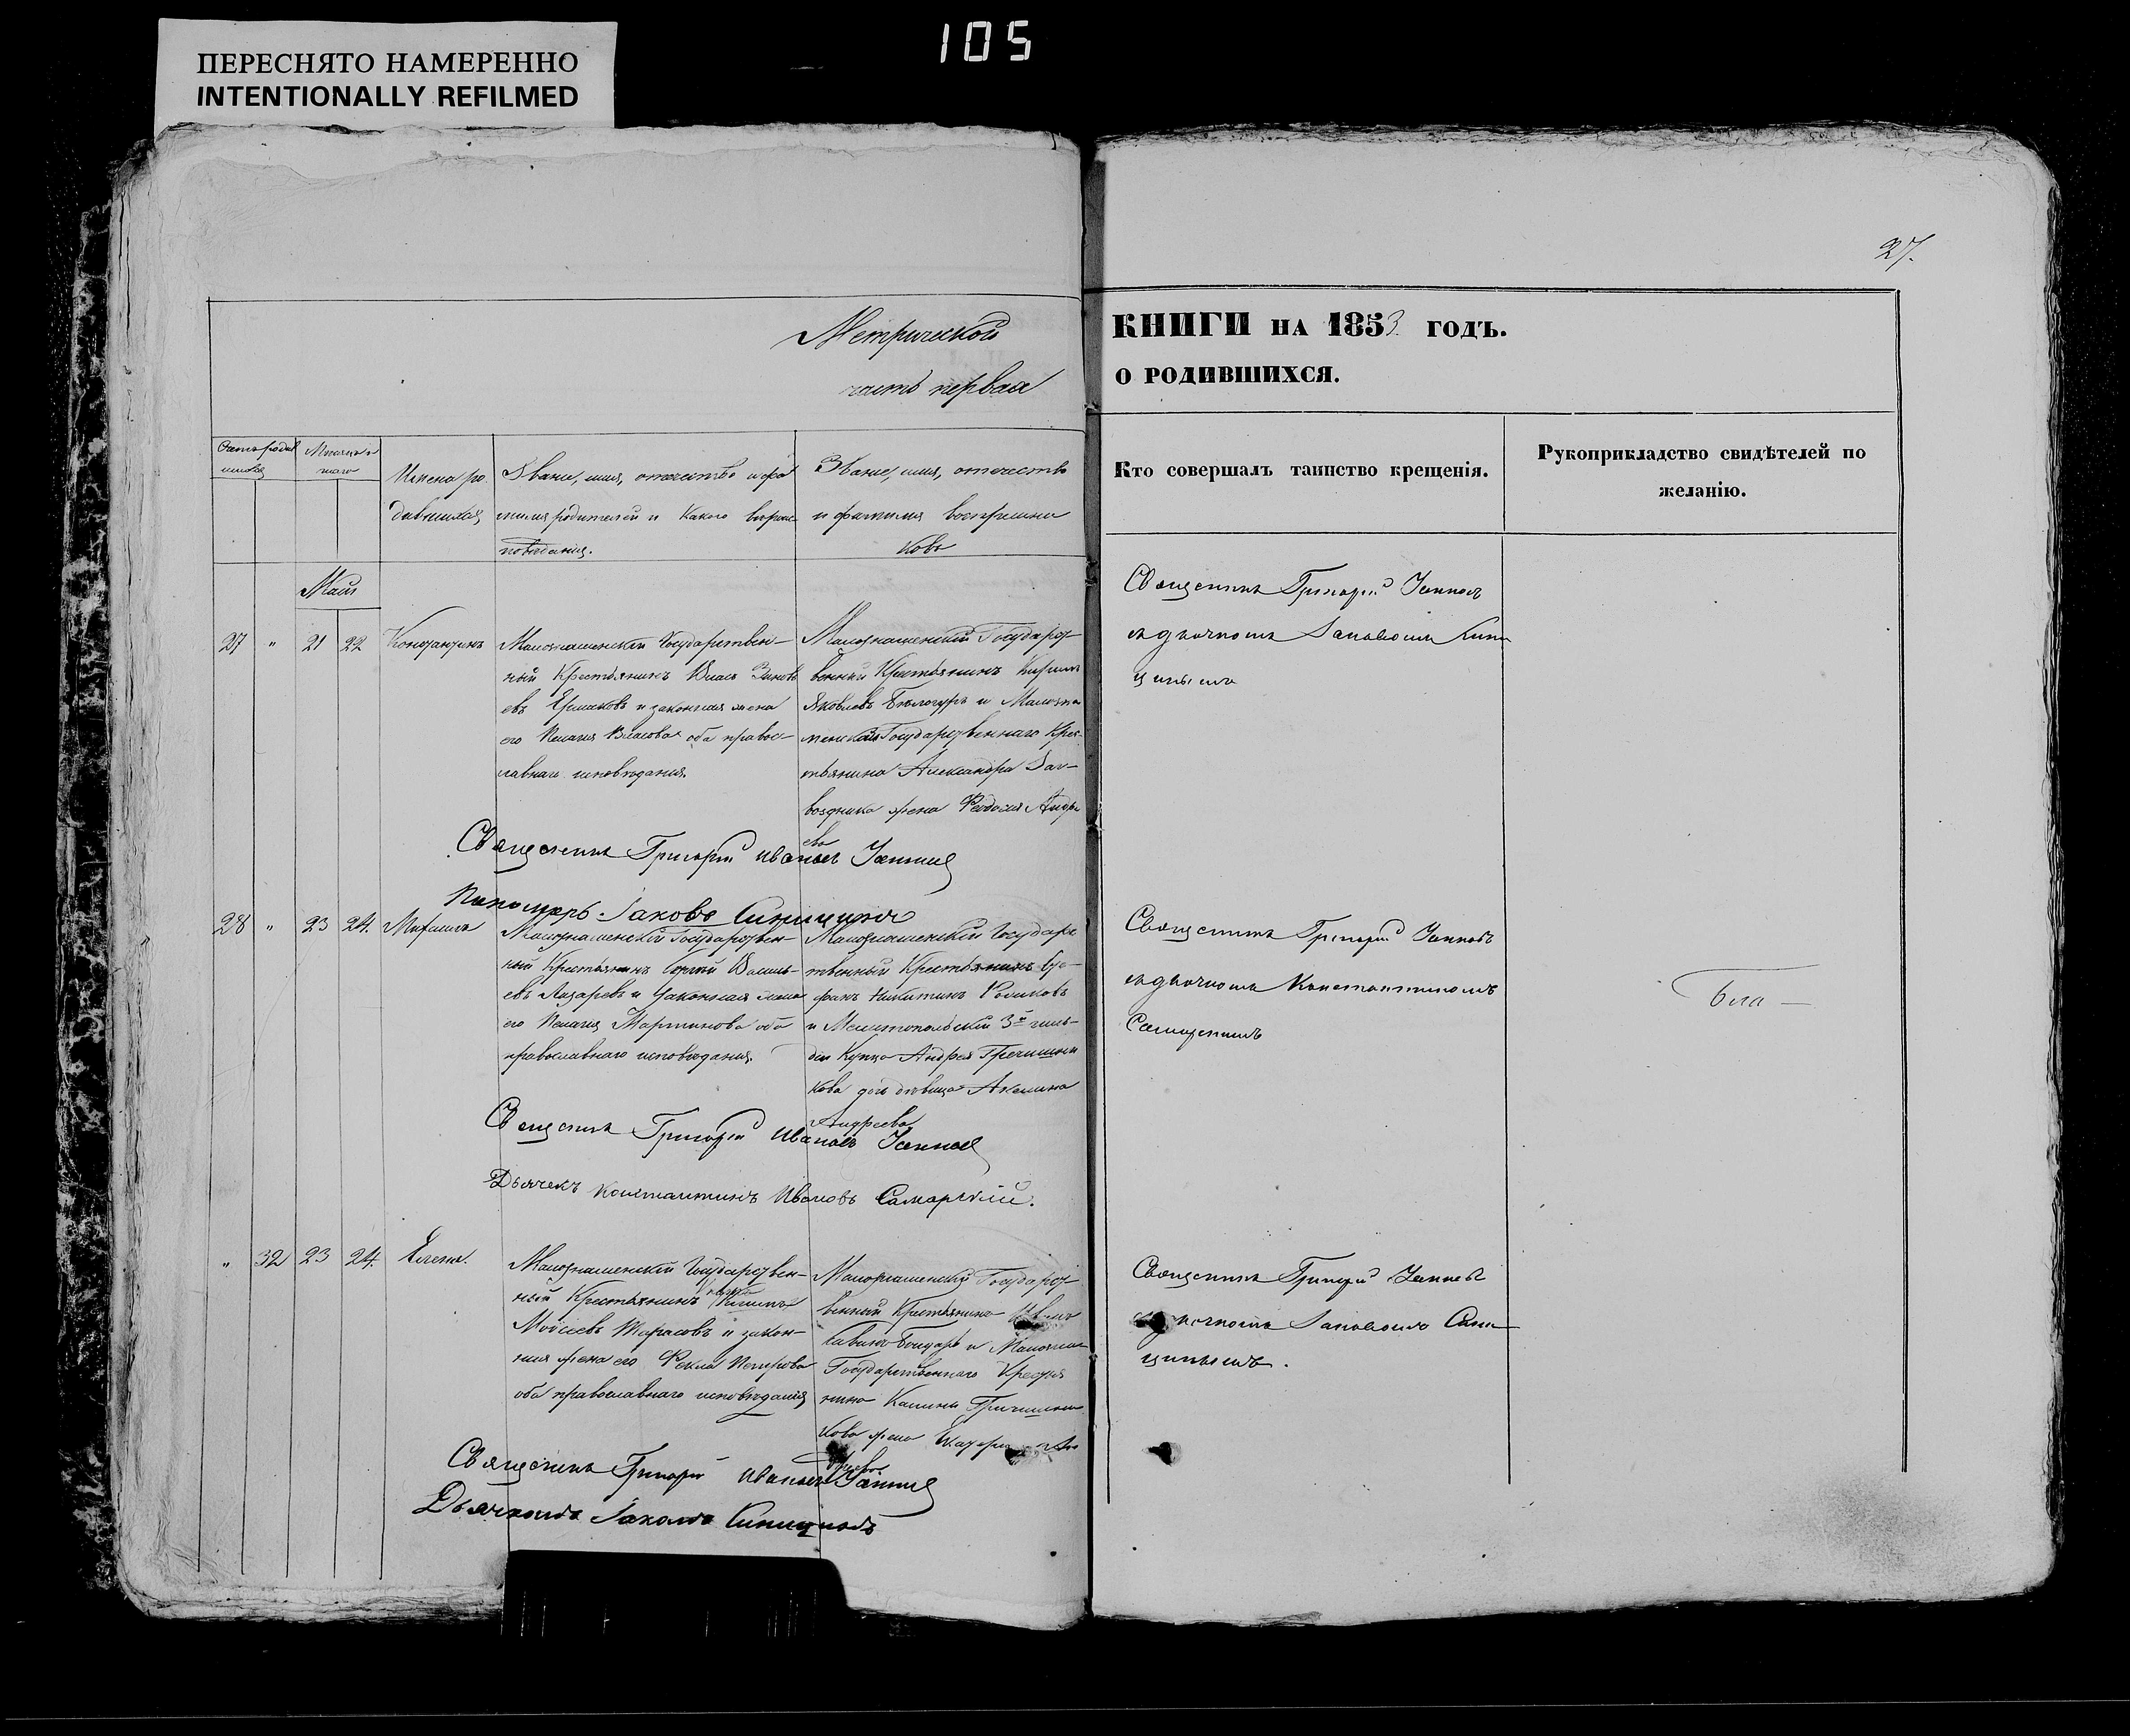 105
ПЕРЕСНЯТО НАМЕРЕННО
INTENTIONALLY REFILMED
27.
Метрической
часть первая
КНИГИ НА 1853 ГОДЪ.
О РОДИВШИХСЯ.
Имена ро
дившихся
Званіе, имя, отечество и фа
милія родителей и какого вероис
поведанія.
Званіе, имя, отечество
и фамилія воспріемни
ковъ
Кто совершалъ таинство крещенія.
Рукоприкладство свидѣтелей по
желанію.
Маій
27 " 21 22
Малознаменскій Государствен-
ный Крестьянинъ Власъ Зиновь
евъ Ермаковъ и законная жена
его Пелагия Власова оба право-
славнаго исповѣданія.
Малознаменскій Государст
венный Крестьянинъ Кирилъ
Яковлевъ Бѣлогуръ и Малозна
менскаго Государственнаго Крес-
тьянина Александра
жена Феодосия Андре
ева
Священникъ Григорій Іанновъ
съ дьячкомъ Іаковомъ Сини
цинымъ
Священникъ Григорій Ивановъ
Пономарь Іаковъ Синицинъ
28 " 23 24. Михаилъ
Малознаменскій Государствен-
ный Крестьянинъ Сергій Василь-
евъ Лазаревъ и законная жена
его Пелагия Мартинова оба
православнаго исповѣданія.
Малознаменскій Государс
твенный Крестьянинъ
Никитинъ
и Мелитопольскій 3й гиль-
діи Купца Андрея Гречишни
кова дочь дѣвица Акилина
Андреева
Священникъ Григорій Іанновъ
съ дьячкомъ Константиномъ
Священникъ Григорій Ивановъ
Дьячекъ Константинъ Ивановъ Самарскій.
" 32 23 24. Елена.
Малознаменскій Государствен-
ный Крестьянинъ
Моисеевъ Тарасовъ и закон-
ная жена его Фекла Петрова
оба православнаго исповѣданія
Малознаменскій Государст
венный Крестьянинъ
Савинъ Бондарь и
Государственнаго Крестья
нина Калины Гречишни
кова жена
Священникъ Григорій Іанновъ
Іаковомъ Сини
цинымъ.
Священникъ Григорій Ивановъ
Дьячковъ Іаковъ Синициновъ